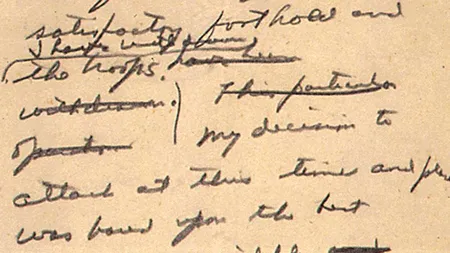 satisfactory foothold and
I have withdrawn
the troops. have been
withdrawn. This particular
operation My decision to
attack at this time and place
was based upon the best